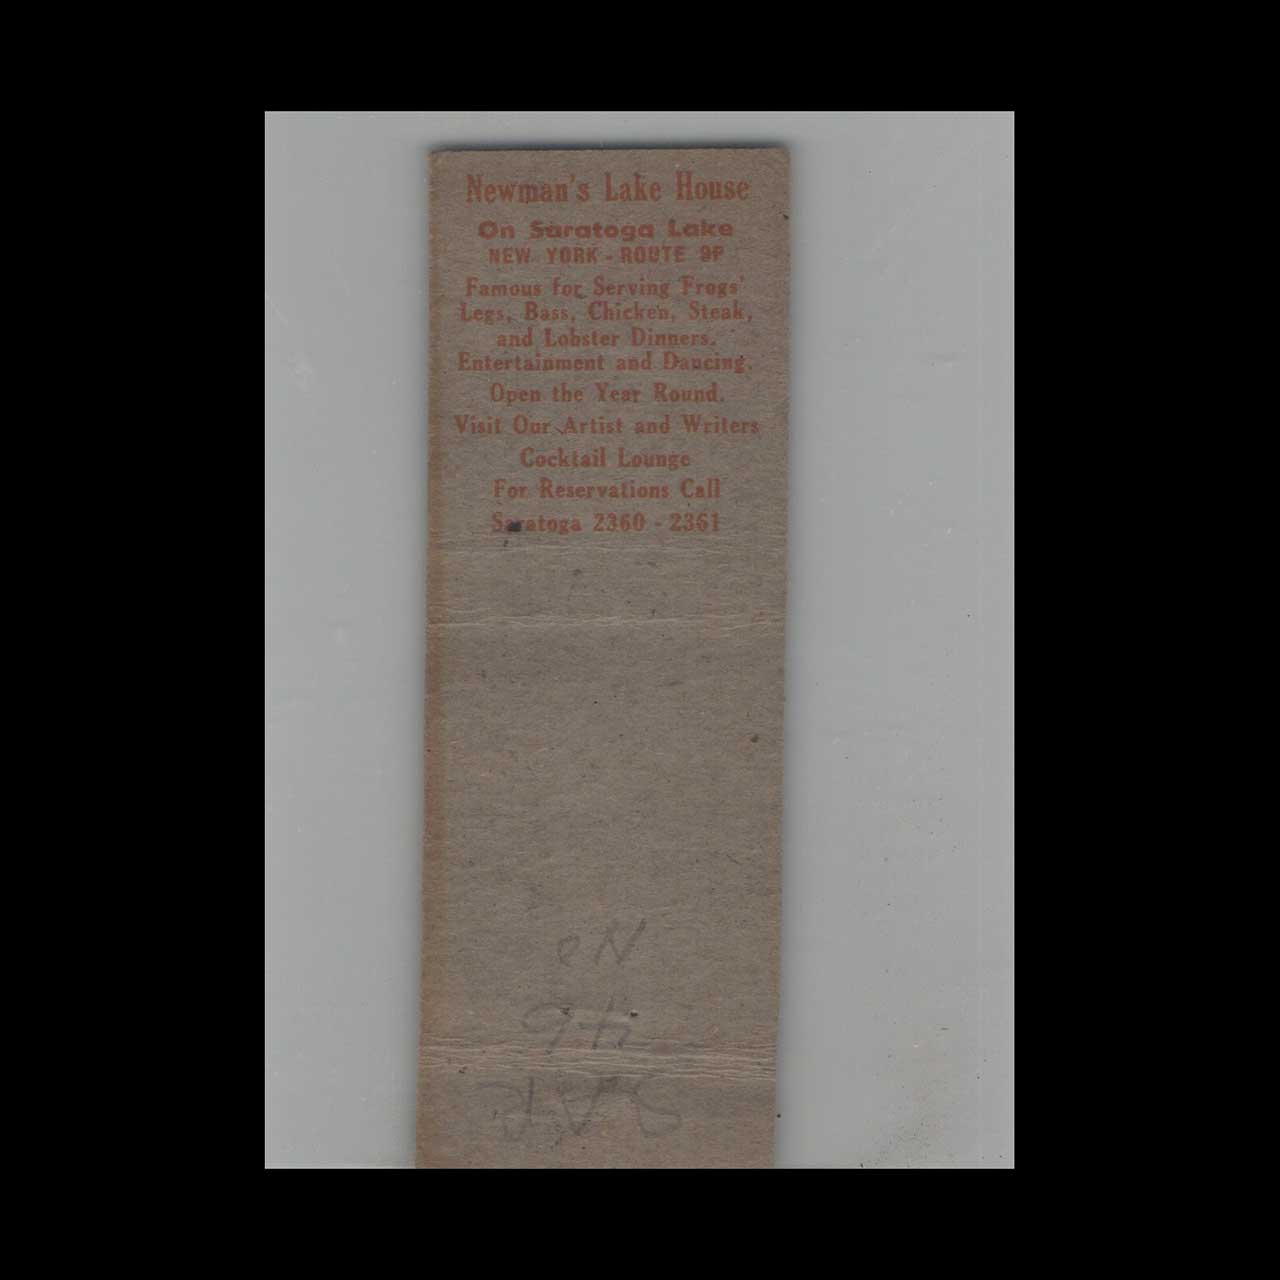 Newman's Lake House
On Saratoga Lake
NEW YORK - ROUTE 9P
Famous for Serving Frogs'
Legs, Bass, Chicken, Steak,
and Lobster Dinners.
Entertainment and Dancing.
Open the Year Round.
Visit Our Artist and Writers
Cocktail Lounge
For Reservations Call
Saratoga 2360 - 2361